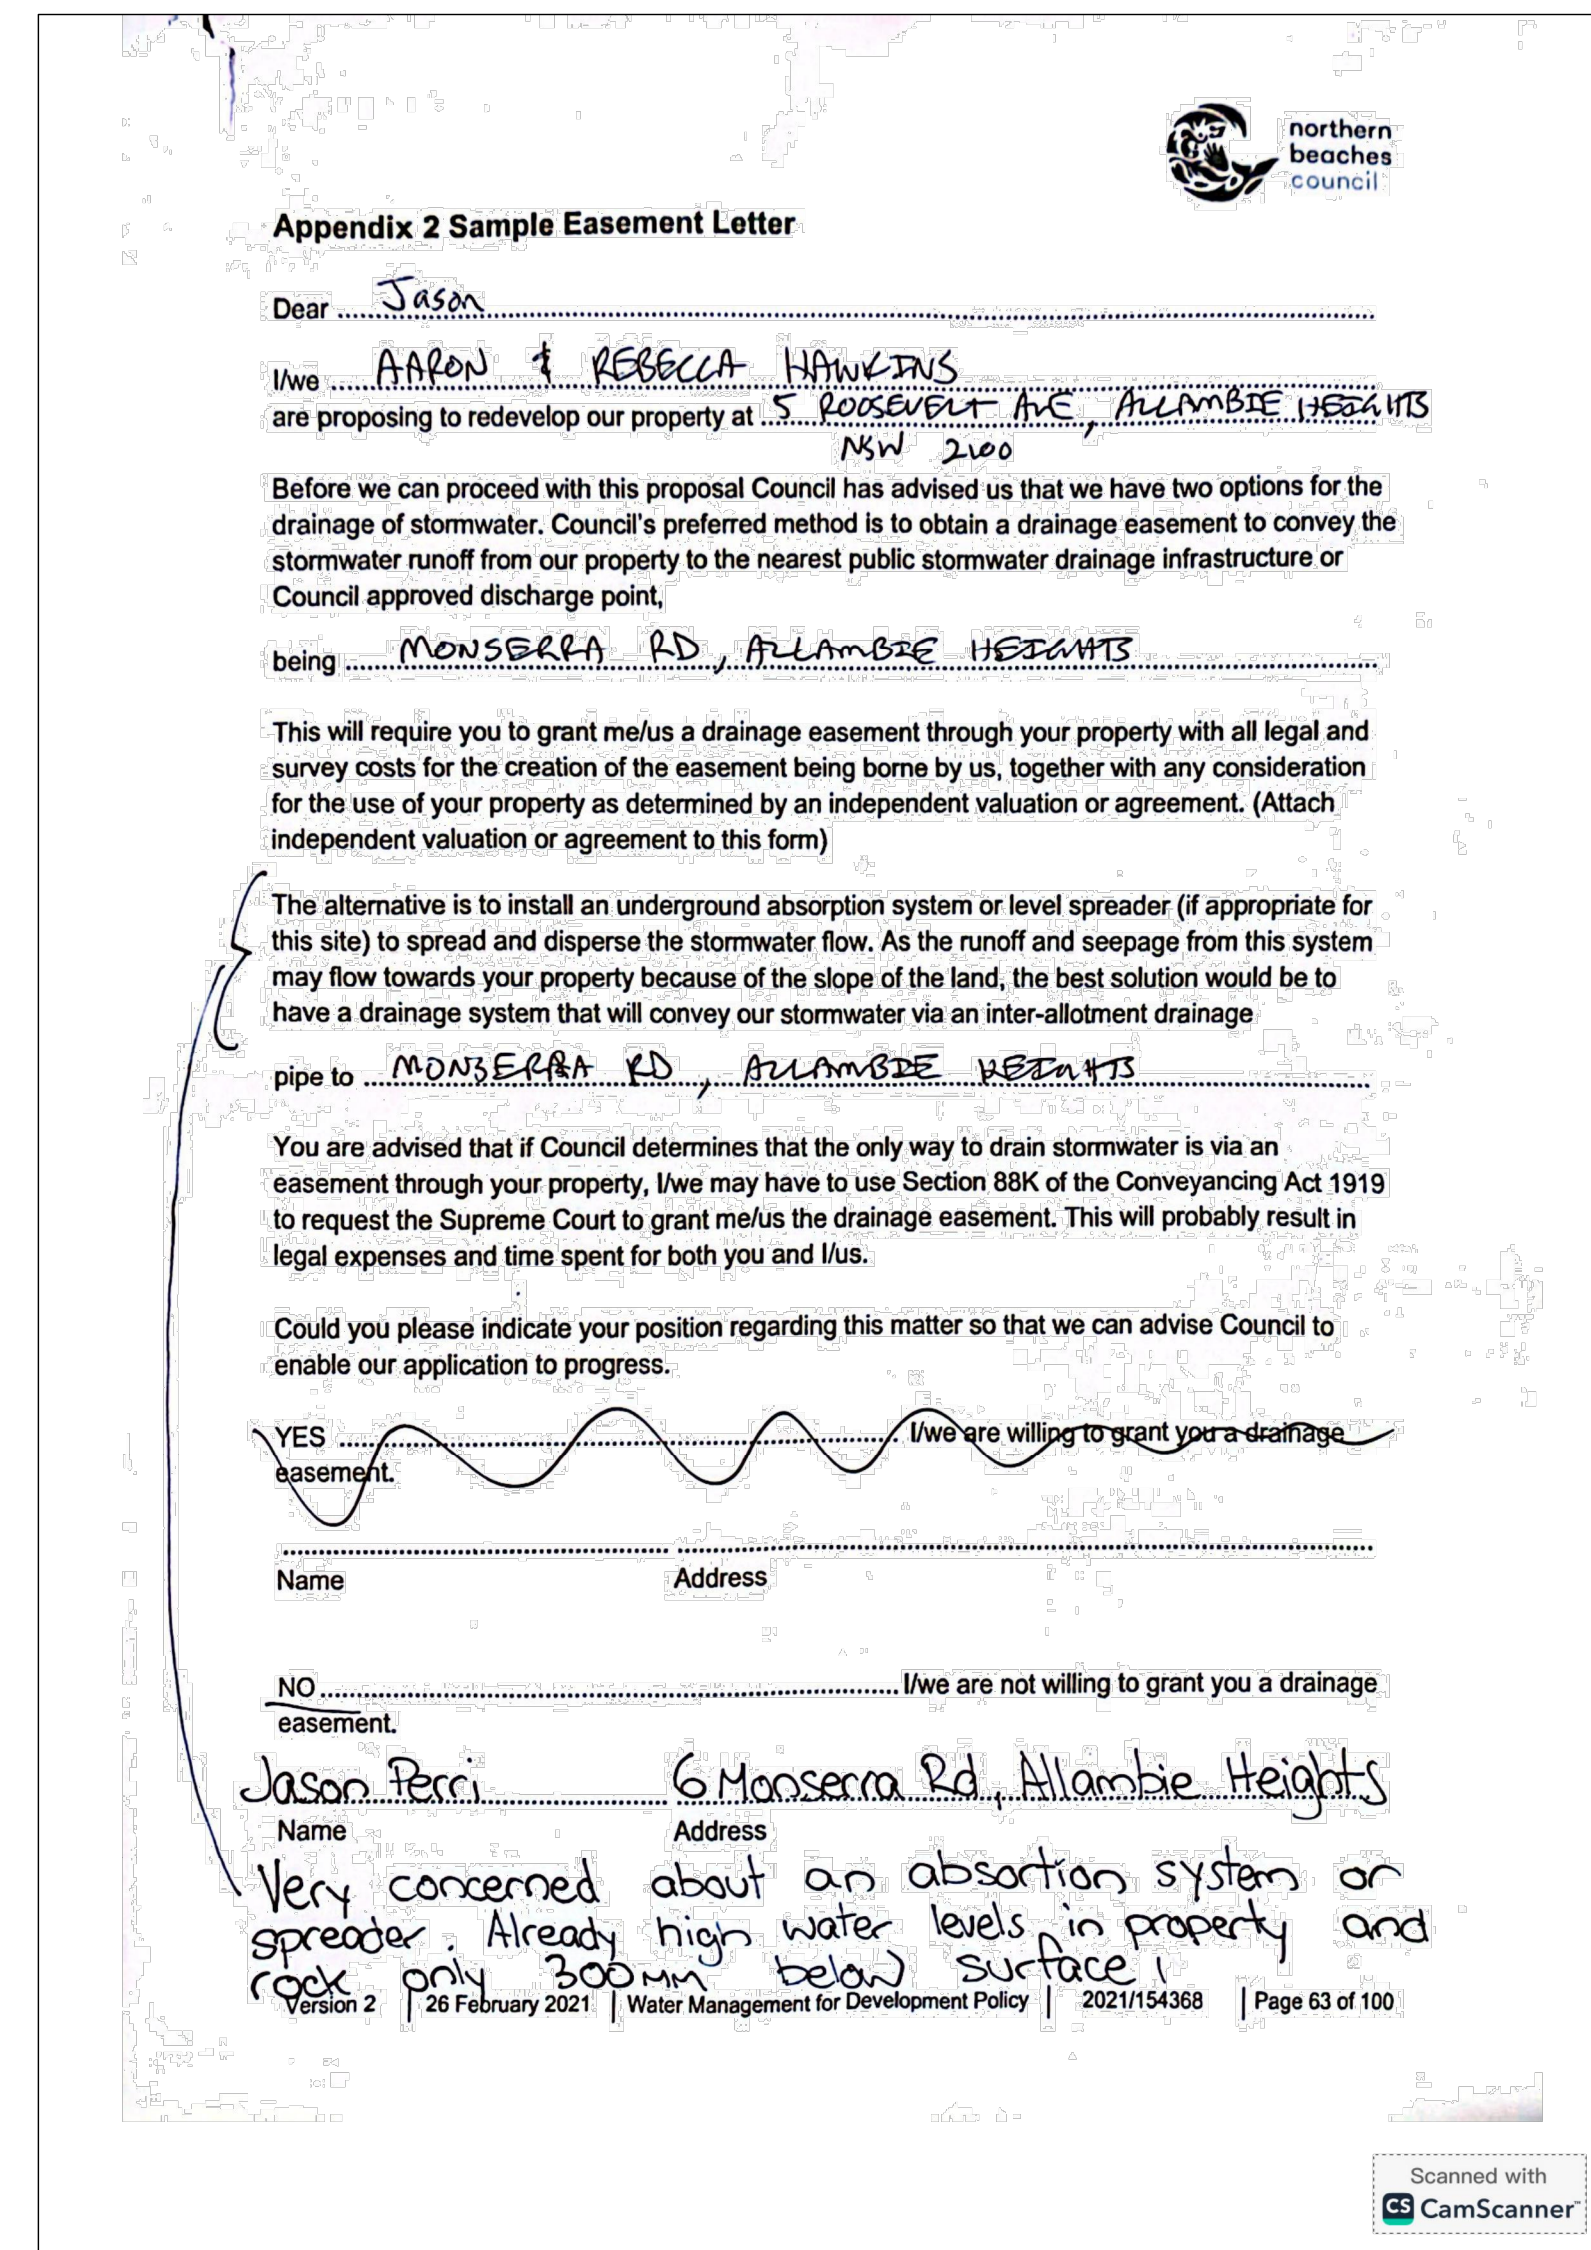 northern
beaches
council
Appendix 2 Sample Easement Letter
Dear Jason
I/we AARON & REBECCA HAWKINS
are proposing to redevelop our property at 5 ROOSEVELT AVE, ALLAMBIE HEIGHTS
NSW 2100
Before we can proceed with this proposal Council has advised us that we have two options for the
drainage of stormwater. Council's preferred method is to obtain a drainage easement to convey the
stormwater runoff from our property to the nearest public stormwater drainage infrastructure or
Council approved discharge point,
being MONSERRA RD, ALLAMBIE HEIGHTS
This will require you to grant me/us a drainage easement through your property with all legal and
survey costs for the creation of the easement being borne by us, together with any consideration
for the use of your property as determined by an independent valuation or agreement. (Attach
independent valuation or agreement to this form)
The alternative is to install an underground absorption system or level spreader (if appropriate for
this site) to spread and disperse the stormwater flow. As the runoff and seepage from this system
may flow towards your property because of the slope of the land, the best solution would be to
have a drainage system that will convey our stormwater via an inter-allotment drainage
pipe to MONSERRA RD, ALLAMBIE HEIGHTS
You are advised that if Council determines that the only way to drain stormwater is via an
easement through your property, I/we may have to use Section 88K of the Conveyancing Act 1919
to request the Supreme Court to grant me/us the drainage easement. This will probably result in
legal expenses and time spent for both you and I/us.
Could you please indicate your position regarding this matter so that we can advise Council to
enable our application to progress.
YES I/we are willing to grant you a drainage
easement.
Name Address
NO I/we are not willing to grant you a drainage
easement.
Jason Perri 6 Monserra Rd, Allambie Heights
Name Address
Very concerned about an absortion system or
spreader. Already high water levels in property and
rock only 300mm below surface!
Version 2 | 26 February 2021 | Water Management for Development Policy | 2021/154368 | Page 63 of 100
Scanned with
CS CamScanner™